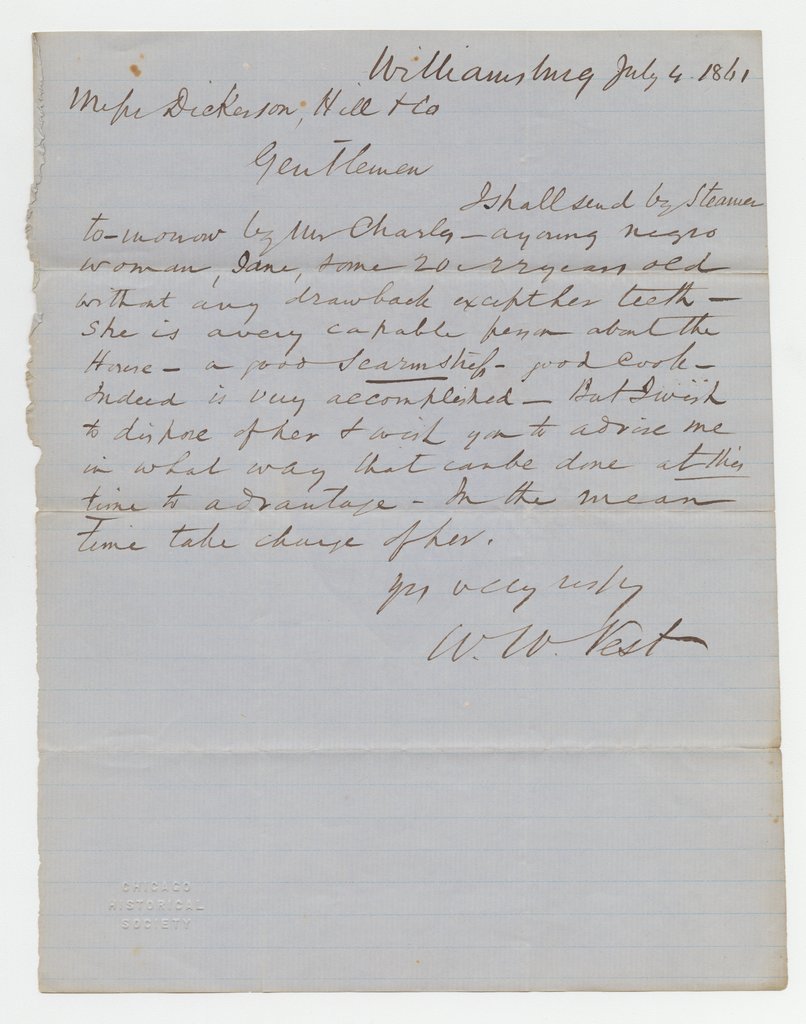 Williamsburg July 4. 1861
Messrs Dickerson, Hill & Co
Gentlemen
I shall send by Steamer
to-morrow by Mr Charles - a young negro
woman, Jane, some 20 or 22 years old
without any drawback except her teeth -
She is a very capable person about the
House - a good Seamstress - good Cook -
Indeed is very accomplished - But I wish
to dispose of her & wish you to advise me
in what way that can be done at this
time to advantage - In the mean
Time take charge of her.
Yrs very respy
W. W. Vest
CHICAGO
HISTORICAL
SOCIETY